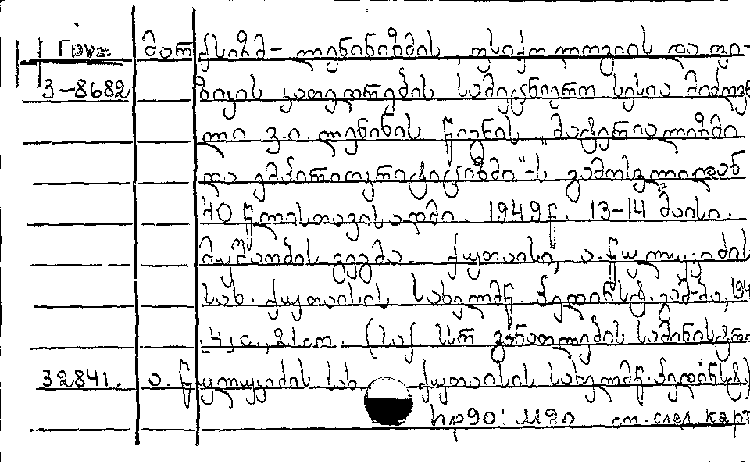 Груз. მარქსიზმ-ლენინიზმის, ფსიქოლოგიის და ფი-
3-8682 ზიკის კათედრების სამეცნიერო სესია მიძღვნი
ლი ვ.ი. ლენინის წიგნის „მატერიალიზმი
და ემპირიოკრიტიციზმი"-ს გამოსვლიდან
40 წლისთავისადმი. 1949წ. 13-14 მაისი.
მუშაობის გეგმა. ქუთაისი, ა. წულუკიძის
სახ. ქუთაისის სახელმწ. პედინსტ. გამ-ბა, 194
4 გვ., 21სმ. (საქ. სსრ განათლების სამინისტრო
32841. ა. წულუკიძის სახ. ქუთაისის სახელმწ. პედინსტ.)
см. след. карт